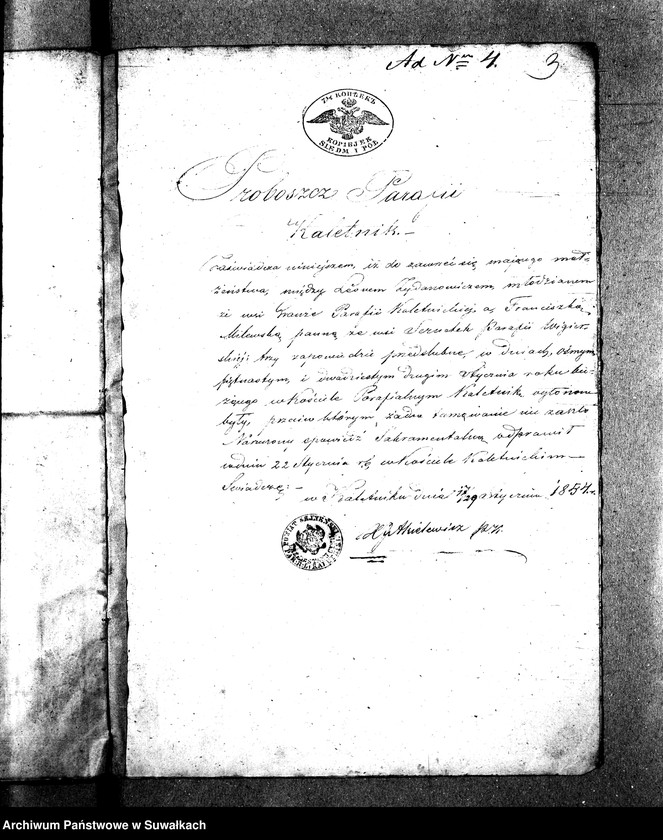 Ad Nrm 4. 3
7½ КОПѢЕКЪ
KOPIEJEK
SIEDM I PÓŁ
Proboszcz Parafii
Kaletnik.—
Zaświadcza niniejszem, iż do zawrzeć się mającego mał-
żeństwa, między Leonem Żydanowiczem, młodzianem
ze wsi Grauże Parafii Kaletnickiej, a, Franciszką
Milewską panną ze wsi Szurpek Parafii Wigier-
skiej trzy zapowiedzie przedślubne, w dniach, ósmym
piętnastym, i dwudziestym drugim Stycznia roku bie-
żącego w Kościele Parafialnym Kaletnik ogłoszone
były, przeciw którym, żadne tamowanie nie zaszło
Narzeczony spowiedź Sakramentalną odprawił
w dniu 22 Stycznia rb w Kościele Kaletnickim—
Świadczę:—
w Kaletniku dnia 17/29 Stycznia 1854 r.